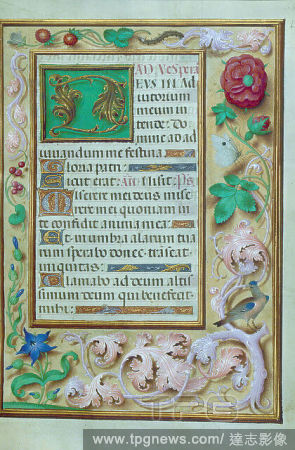 AD Vespera
EUS IN Ad
iutorium
meum in
tende: do
mine ad ad
iuvandum me festina
Gloria patri:
Sicut erat: An Misit. Ps.
Miserere mei deus mise
rere mei quoniam in
te confidit anima mea
Et in umbra alarum tua
rum sperabo donec transeat
iniquitas.
Clamabo ad deum altis
simum deum qui benefecit
mihi:
TPG
www.tpgnews.com / 達志影像